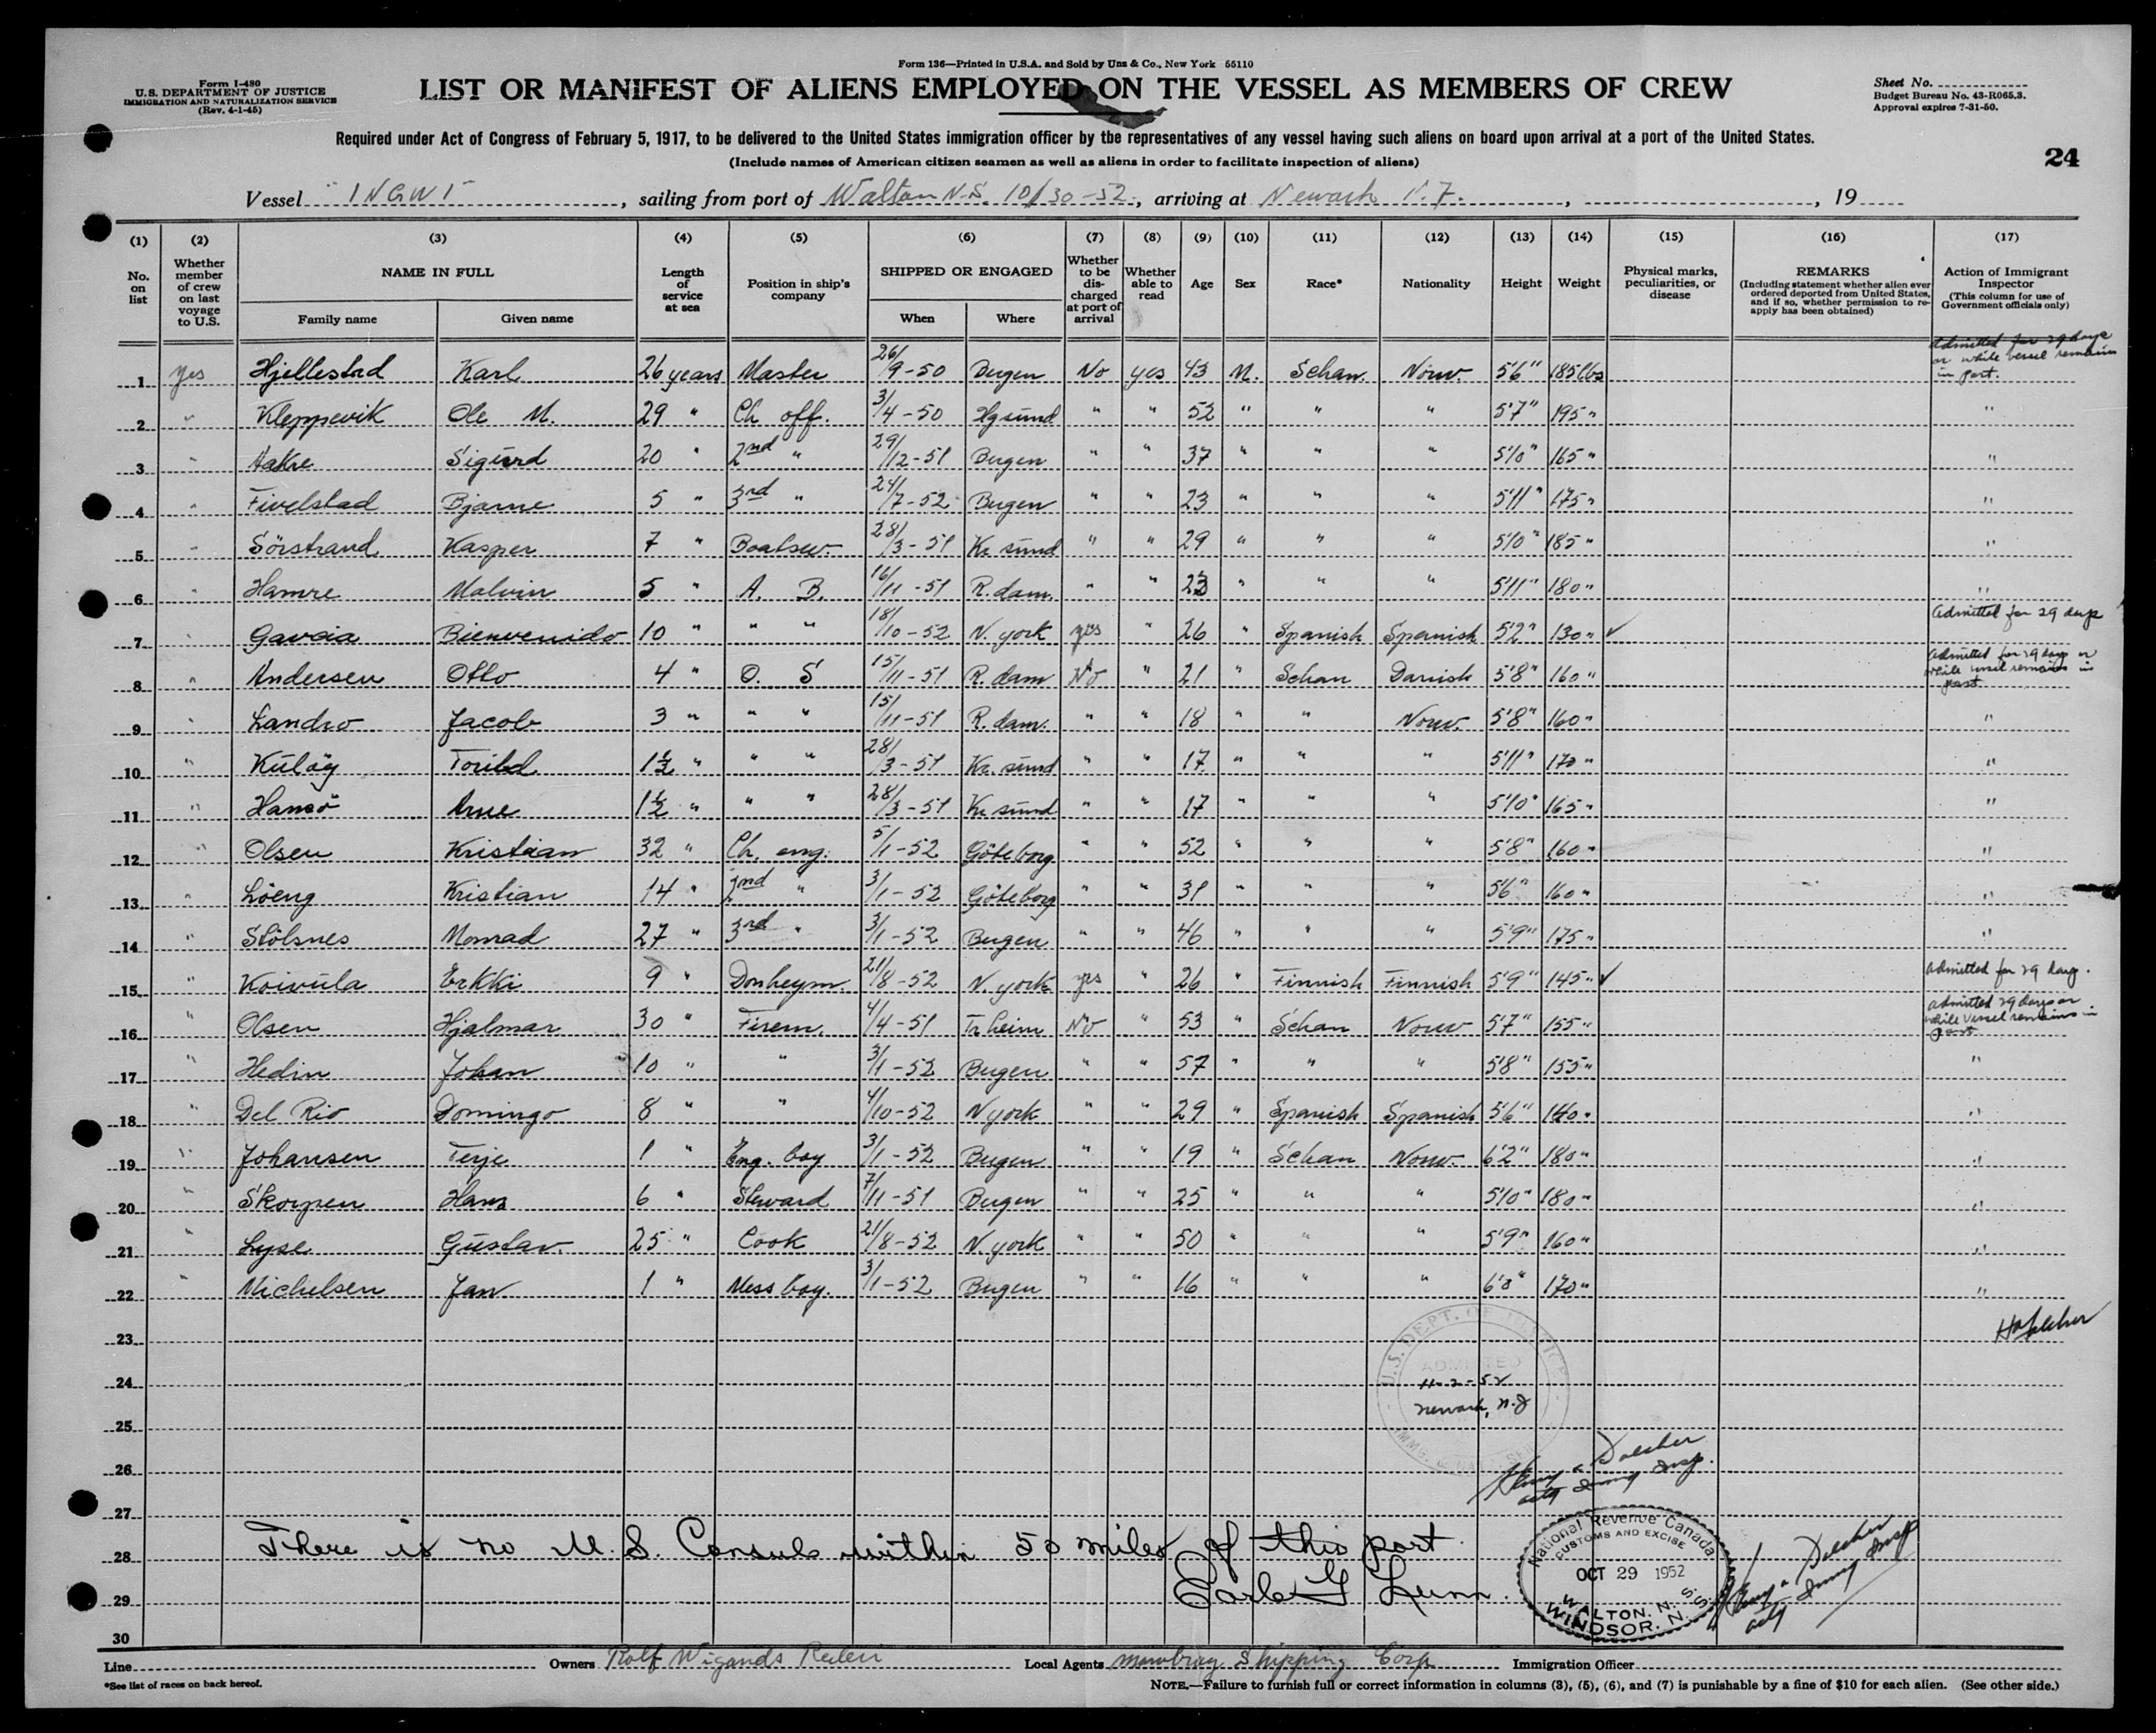 Form I-480
U.S. DEPARTMENT OF JUSTICE
IMMIGRATION AND NATURALIZATION SERVICE
(Rev. 4-1-45)
Form 136—Printed in U.S.A. and Sold by Unz & Co., New York 55110
LIST OR MANIFEST OF ALIENS EMPLOYED ON THE VESSEL AS MEMBERS OF CREW
Sheet No.
Budget Bureau No. 43-R065.3.
Approval expires 7-31-50.
Required under Act of Congress of February 5, 1917, to be delivered to the United States immigration officer by the representatives of any vessel having such aliens on board upon arrival at a port of the United States.
(Include names of American citizen seamen as well as aliens in order to facilitate inspection of aliens)
24
Vessel "INGWI", sailing from port of Walton N.S. 10/30-52, arriving at Newark, 19
(1) (2) (3) (4) (5) (6) (7) (8) (9) (10) (11) (12) (13) (14) (15) (16) (17)
No. on list
Whether member of crew on last voyage to U.S.
NAME IN FULL
Family name Given name
Length of service at sea
Position in ship's company
SHIPPED OR ENGAGED
When Where
Whether to be discharged at port of arrival
Whether able to read
Age Sex Race* Nationality Height Weight
Physical marks, peculiarities, or disease
REMARKS
(Including statement whether alien ever ordered deported from United States, and if so, whether permission to re-apply has been obtained)
Action of Immigrant Inspector
(This column for use of Government officials only)
1 yes Hjellestad Karl 26 years Master 26/9-50 Bergen No yes 43 M. Schan. Norw. 5'6" 185 lbs Admitted for 29 days or while vessel remains in port.
2 " Kleppevik Ole M. 29 " Ch off. 3/4-50 Hgsund " " 52 " " " 5'7" 195 " "
3 " Aakre Sigurd 20 " 2nd " 29/12-51 Bergen " " 37 " " " 5'10" 165 " "
4 " Fivelstad Bjarne 5 " 3rd " 24/7-52 Bergen " " 23 " " " 5'11" 175 " "
5 " Sörstrand Kasper 7 " Boatsw. 28/3-51 Kr sund " " 29 " " " 5'10" 185 " "
6 " Hamre Malvin 5 " A. B. 16/11-51 R.dam. " " 23 " " " 5'11" 180 " "
7 " Garcia Bienvenido 10 " " " 18/10-52 N. york yes " 26 " Spanish Spanish 5'2" 130 " ✓ Admitted for 29 days
8 " Andersen Otto 4 " O. S 15/11-51 R. dam No " 21 " Schan Danish 5'8" 160 " Admitted for 29 days or while vessel remains in port
9 " Landro Jacob 3 " " " 15/11-51 R. dam. " " 18 " " Norw. 5'8" 160 " "
10 " Kulöy 1½ " " " 28/3-51 Kr. sund " " 17 " " " 5'11" 170 " "
11 " Hansö Arne 1½ " " " 28/3-51 Kr sund " " 17 " " " 5'10" 165 " "
12 " Olsen Kristian 32 " Ch. eng. 5/1-52 Göteborg " " 52 " " " 5'8" 160 " "
13 " Löeng Kristian 14 " 2nd " 3/1-52 Göteborg " " 31 " " " 5'6" 160 " "
14 " Stölsnes Monrad 27 " 3rd " 3/1-52 Bergen " " 46 " " " 5'9" 175 " "
15 " Koivula Erkki 9 " Donkeym. 21/8-52 N. york yes " 26 " Finnish Finnish 5'9" 145 " ✓ Admitted for 29 days.
16 " Olsen Hjalmar 30 " Firem. 4/4-51 Tr.heim No " 53 " Schan Norw 5'7" 155 " Admitted 29 days or while vessel remains in port
17 " Hedin Johan 10 " " 3/1-52 Bergen " " 57 " " " 5'8" 155 " "
18 " Del Rio Domingo 8 " " 4/10-52 N york " " 29 " Spanish Spanish 5'6" 140 " "
19 " Johansen Terje 1 " Eng. boy 3/1-52 Bergen " " 19 " Schan Norw. 6'2" 180 " "
20 " Skorpen Hans 6 " Steward 7/11-51 Bergen " " 25 " " " 5'10" 180 " "
21 " Lyse Gustav. 25 " Cook 21/8-52 N. york " " 50 " " " 5'9" 160 " "
22 " Michelsen Jan 1 " Mess boy. 3/1-52 Bergen " " 16 " " " 6'0" 170 " "
23
24
25
26
27
28
29
30
U.S. DEPT. OF JUSTICE
ADMITTED
11-2-52
Newark, N.J
There is no U.S. Consul within 50 miles of this port.
Earle G Lunn.
National Revenue Canada
CUSTOMS AND EXCISE
OCT 29 1952
WALTON, N.S.
WINDSOR, N.S.
Line Owners Rolf Wigands Rederi Local Agents Mowbray Shipping Corp Immigration Officer
*See list of races on back hereof.
NOTE.—Failure to furnish full or correct information in columns (3), (5), (6), and (7) is punishable by a fine of $10 for each alien. (See other side.)